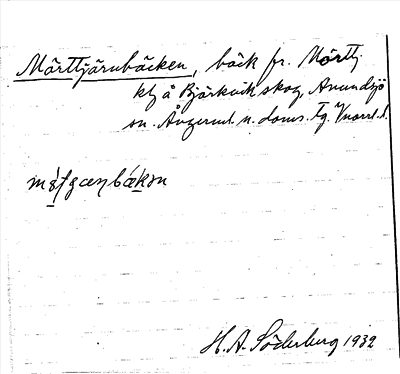 Mörttjärnbäcken, bäck fr. Mörttj.
å Björkvik skog, Anundsjö
sn. Ångerml. n. doms. Tg. Vnorrl. l.
H. A. Söderberg 1932